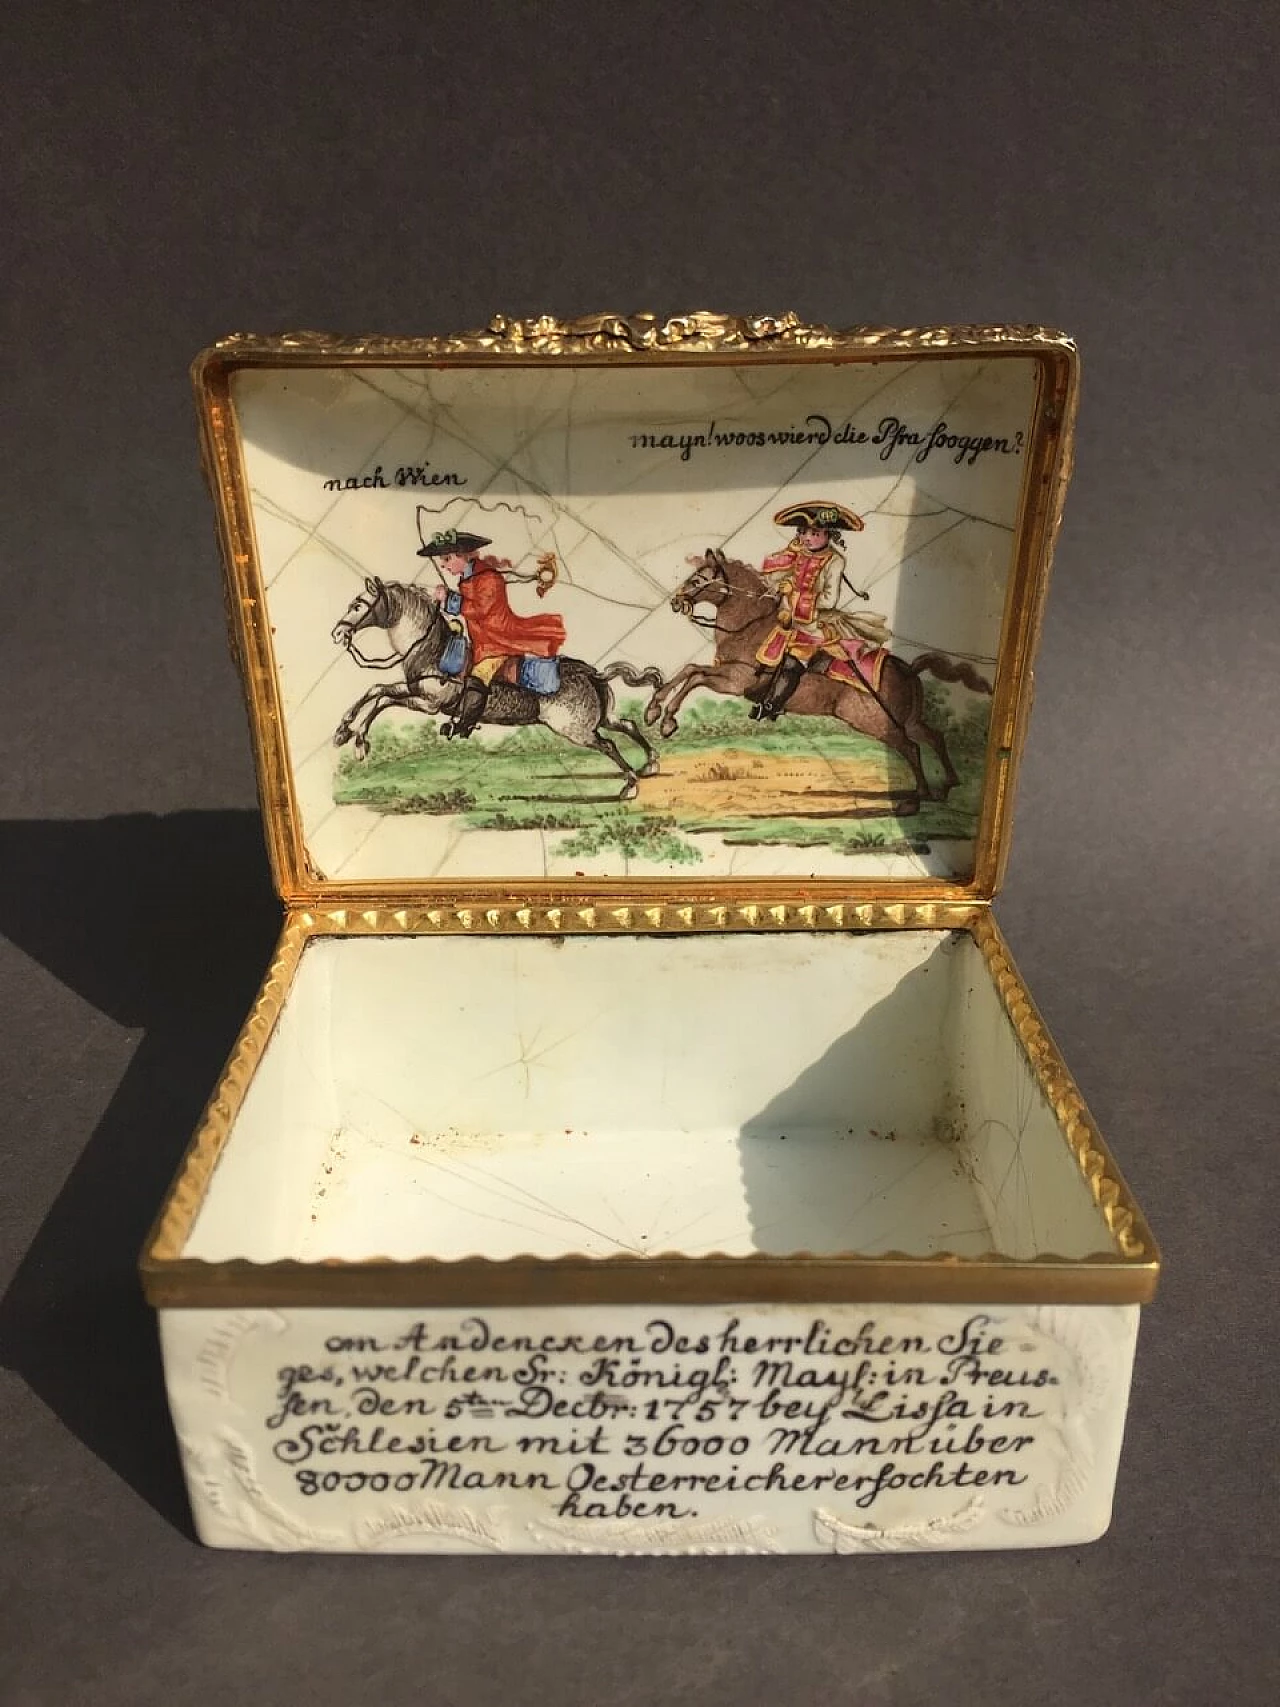 mayn! woos wierd die Phra sooggen?
nach Wien
am Andencken des herrlichen Sie-
ges, welchen Sr: Königl: Mayſ: in Preus-
ſen, den 5ten Decbr: 1757 bey Liſſa in
Schlesien mit 36000 Mann über
80000 Mann Oesterreicher erfochten
haben.